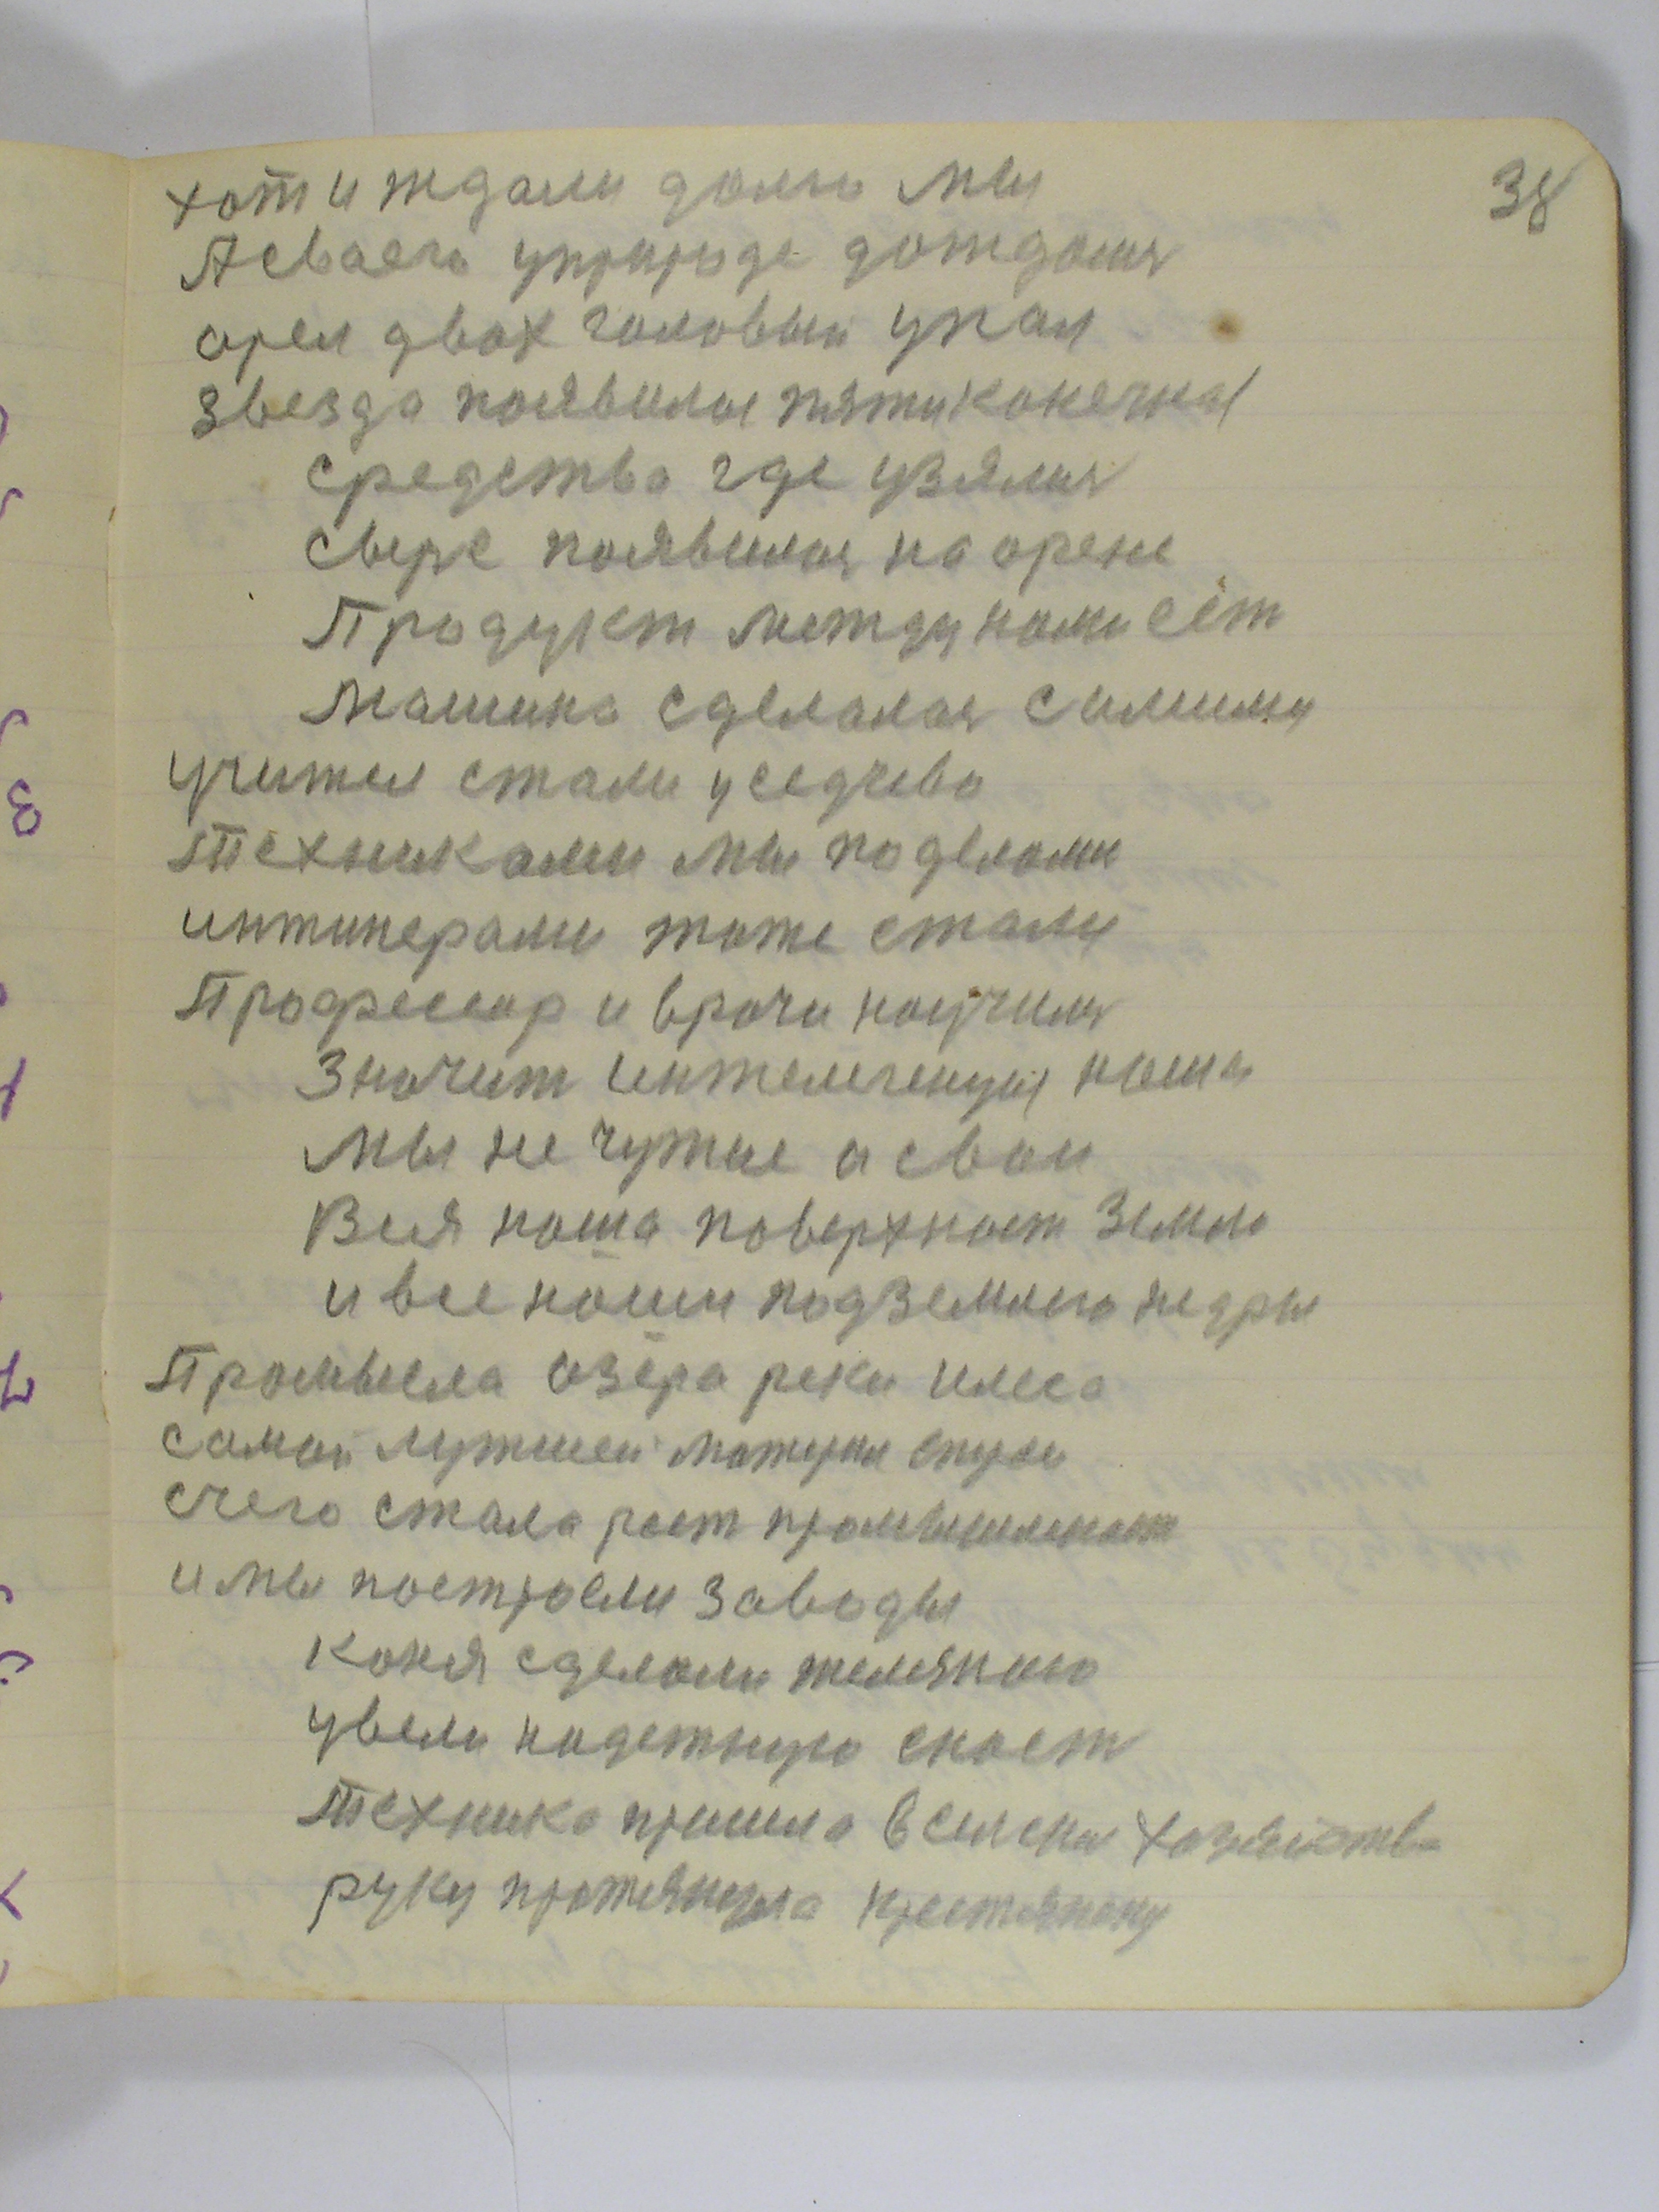 38
хот и ждали долго мы
А сваего уприроде дождалис
орел двох головый упал
Звезда появилас пятиконечная
средства где узялис
сыре появилос на арене
Продукт между нами ест
машина сделалас
учител стали
Техниками мы поделали
инжинерами тоже стали
Професcор и врачи научилис
Значит интелегенция наша
мы не чужие а свои
Вся наша поверхност Земли
и все наши подземного недры
Промысла озёра реки илеса
самой лутшей
счего стала рост промышленност
и мы построели заводы
коня сделали желязного
увели
Техника пришла в селско хозяйства
руку протянула крестянину